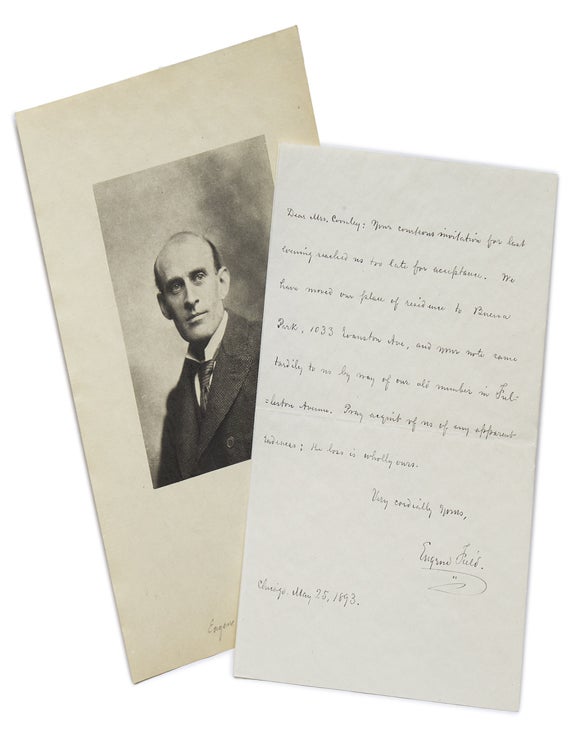 Dear Mrs. Coonley: Your courteous invitation for last
evening reached us too late for acceptance. We
have moved our place of residence to Buena
Park, 1033 Evanston Ave, and your note came
tardily to us by way of our old number in Ful-
=lerton Avenue. Pray acquit of us of any apparent
rudeness; the loss is wholly ours.
Very cordially Yours,
Eugene Field.
Chicago, May 25, 1893.
Eugene